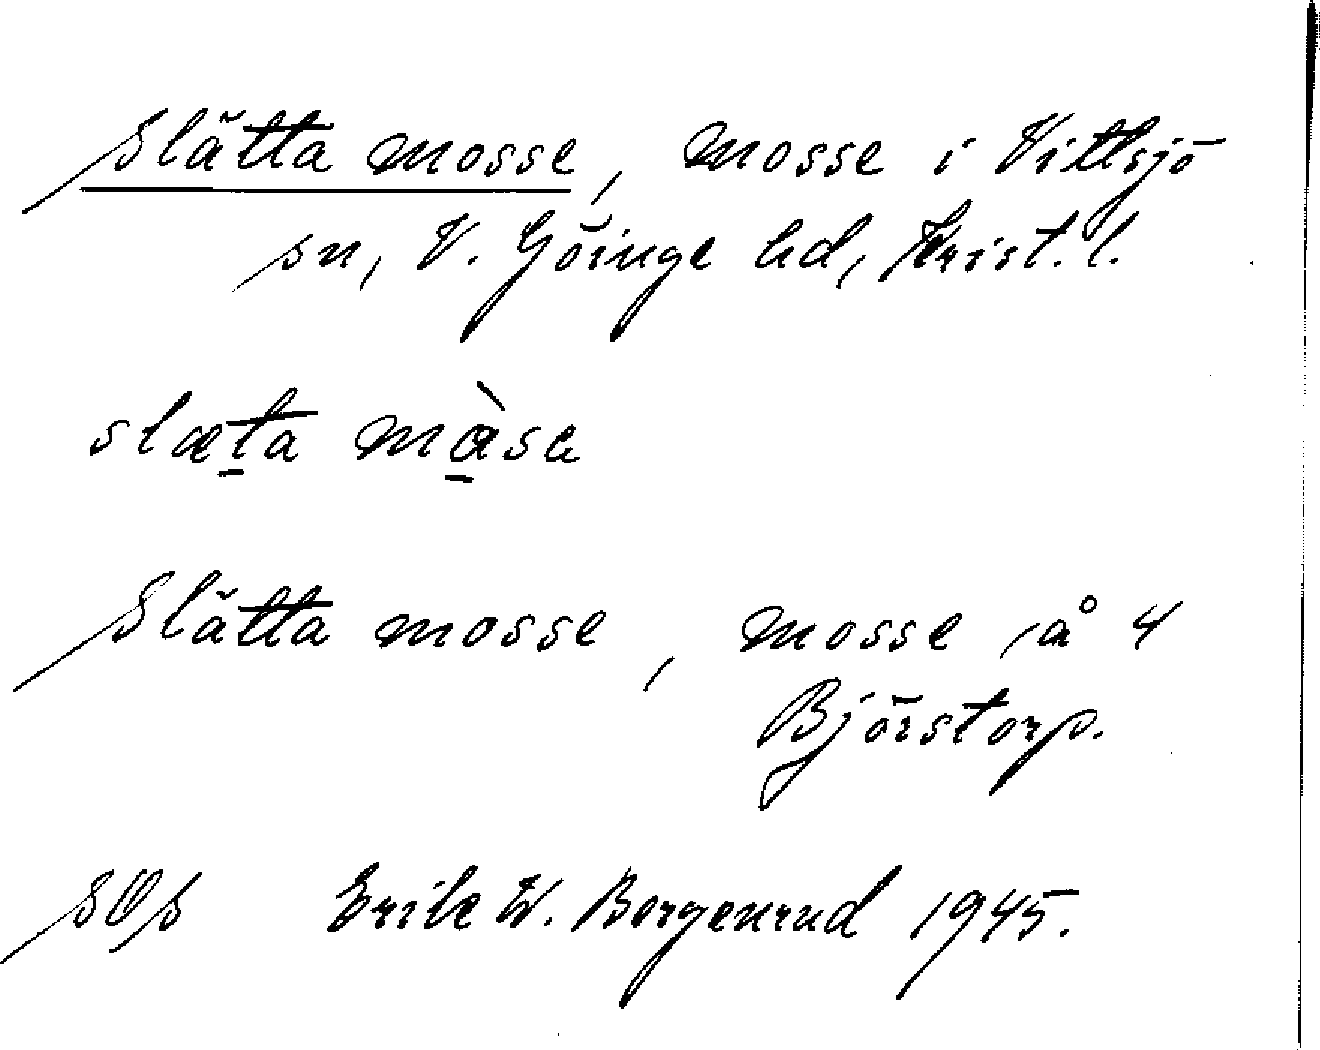 Slätta mosse, mosse i Vittsjö
sn, V. Göinge hd, Krist. l.
slæta màse
Slätta mosse, mosse å 4
Björstorp.
SOS Erik W. Borgenrud 1945.